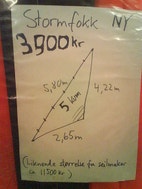 Stormfokk NY
3900kr
5,80m
5 kvm
4,22m
2,65m
(liknende størrelse fra seilmaker
ca 11500kr)